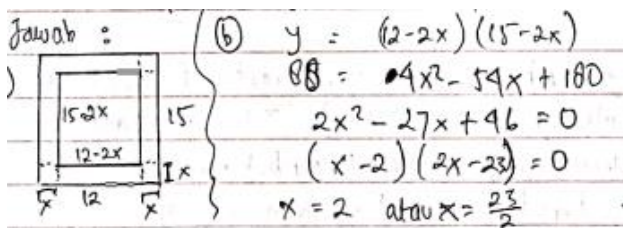 Jawab :
15-2x
15
12-2x
x
x 12 x
(b) y = (12-2x)(15-2x)
88 = 4x² - 54x + 180
2x² - 27x + 46 = 0
(x-2)(2x-23) = 0
x = 2 atau x = 23/2